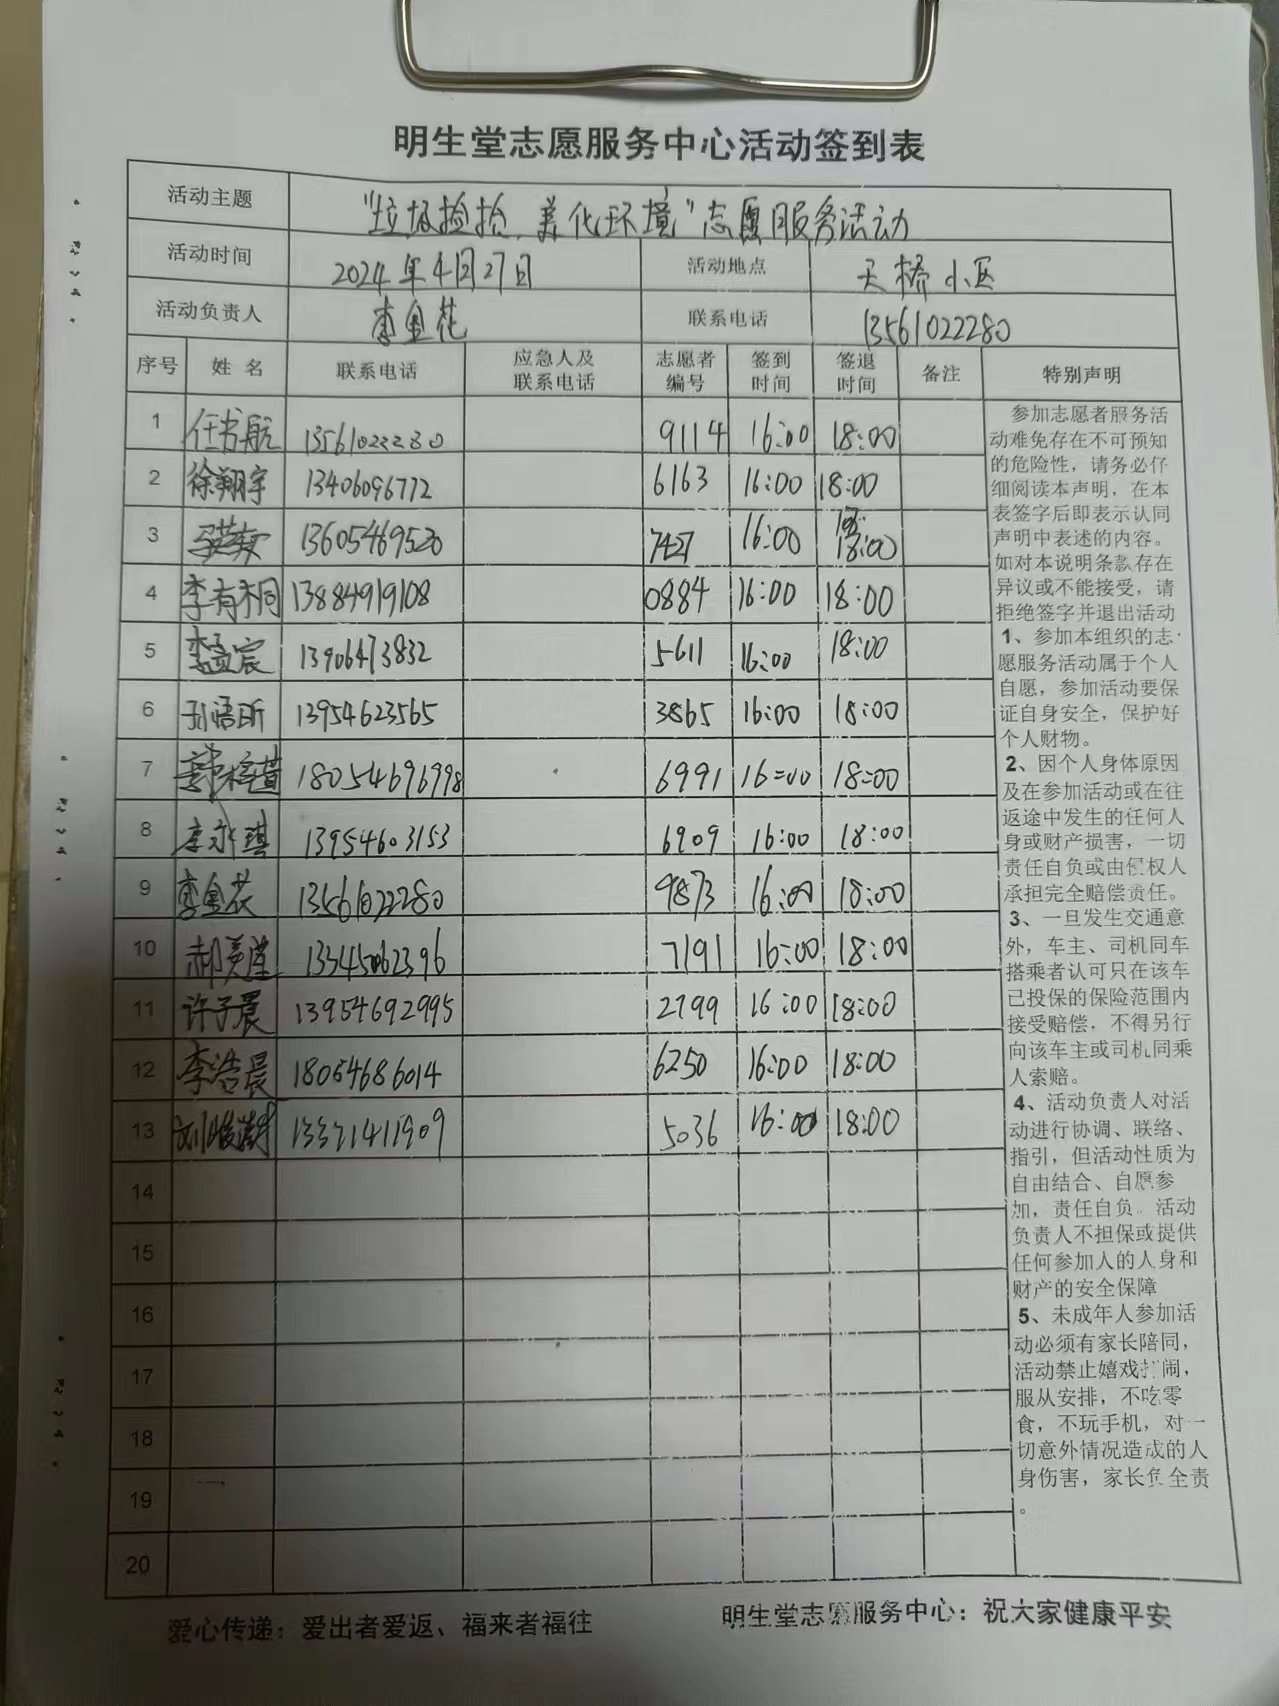 明生堂志愿服务中心活动签到表
活动主题 "垃圾捡拾、美化环境"志愿服务活动
活动时间 2024年4月27日 活动地点 天桥小区
活动负责人 李金花 联系电话 13561022280
序号 姓名 联系电话 应急人及联系电话 志愿者编号 签到时间 签退时间 备注 特别声明
1 任书航 13561022280 9114 16:00 18:00
2 徐翔宇 13406096772 6163 16:00 18:00
3 13605469520 7427 16:00 18:00
4 李有桐 13884919108 0884 16:00 18:00
5 李孟宸 13906473832 5611 16:00 18:00
6 孙语昕 13954623565 3865 16:00 18:00
7 18054696998 6991 16:00 18:00
8 李永琪 13954603153 6909 16:00 18:00
9 李金花 13561022280 9873 16:00 18:00
10 13345062396 7191 16:00 18:00
11 许子晨 13954692995 2799 16:00 18:00
12 李浩晨 18054686014 6250 16:00 18:00
13 13371411909 5036 16:00 18:00
14
15
16
17
18
19
20
参加志愿者服务活
动难免存在不可预知
的危险性，请务必仔
细阅读本声明，在本
表签字后即表示认同
声明中表述的内容。
如对本说明条款存在
异议或不能接受，请
拒绝签字并退出活动
1、参加本组织的志
愿服务活动属于个人
自愿，参加活动要保
证自身安全，保护好
个人财物。
2、因个人身体原因
及在参加活动或在往
返途中发生的任何人
身或财产损害，一切
责任自负或由侵权人
承担完全赔偿责任。
3、一旦发生交通意
外，车主、司机同车
搭乘者认可只在该车
已投保的保险范围内
接受赔偿，不得另行
向该车主或司机同乘
人索赔。
4、活动负责人对活
动进行协调、联络、
指引，但活动性质为
自由结合、自愿参
加，责任自负。活动
负责人不担保或提供
任何参加人的人身和
财产的安全保障
5、未成年人参加活
动必须有家长陪同，
活动禁止嬉戏打闹，
服从安排，不吃零
食，不玩手机，对一
切意外情况造成的人
身伤害，家长负全责
。
爱心传递：爱出者爱返、福来者福往 明生堂志愿服务中心：祝大家健康平安